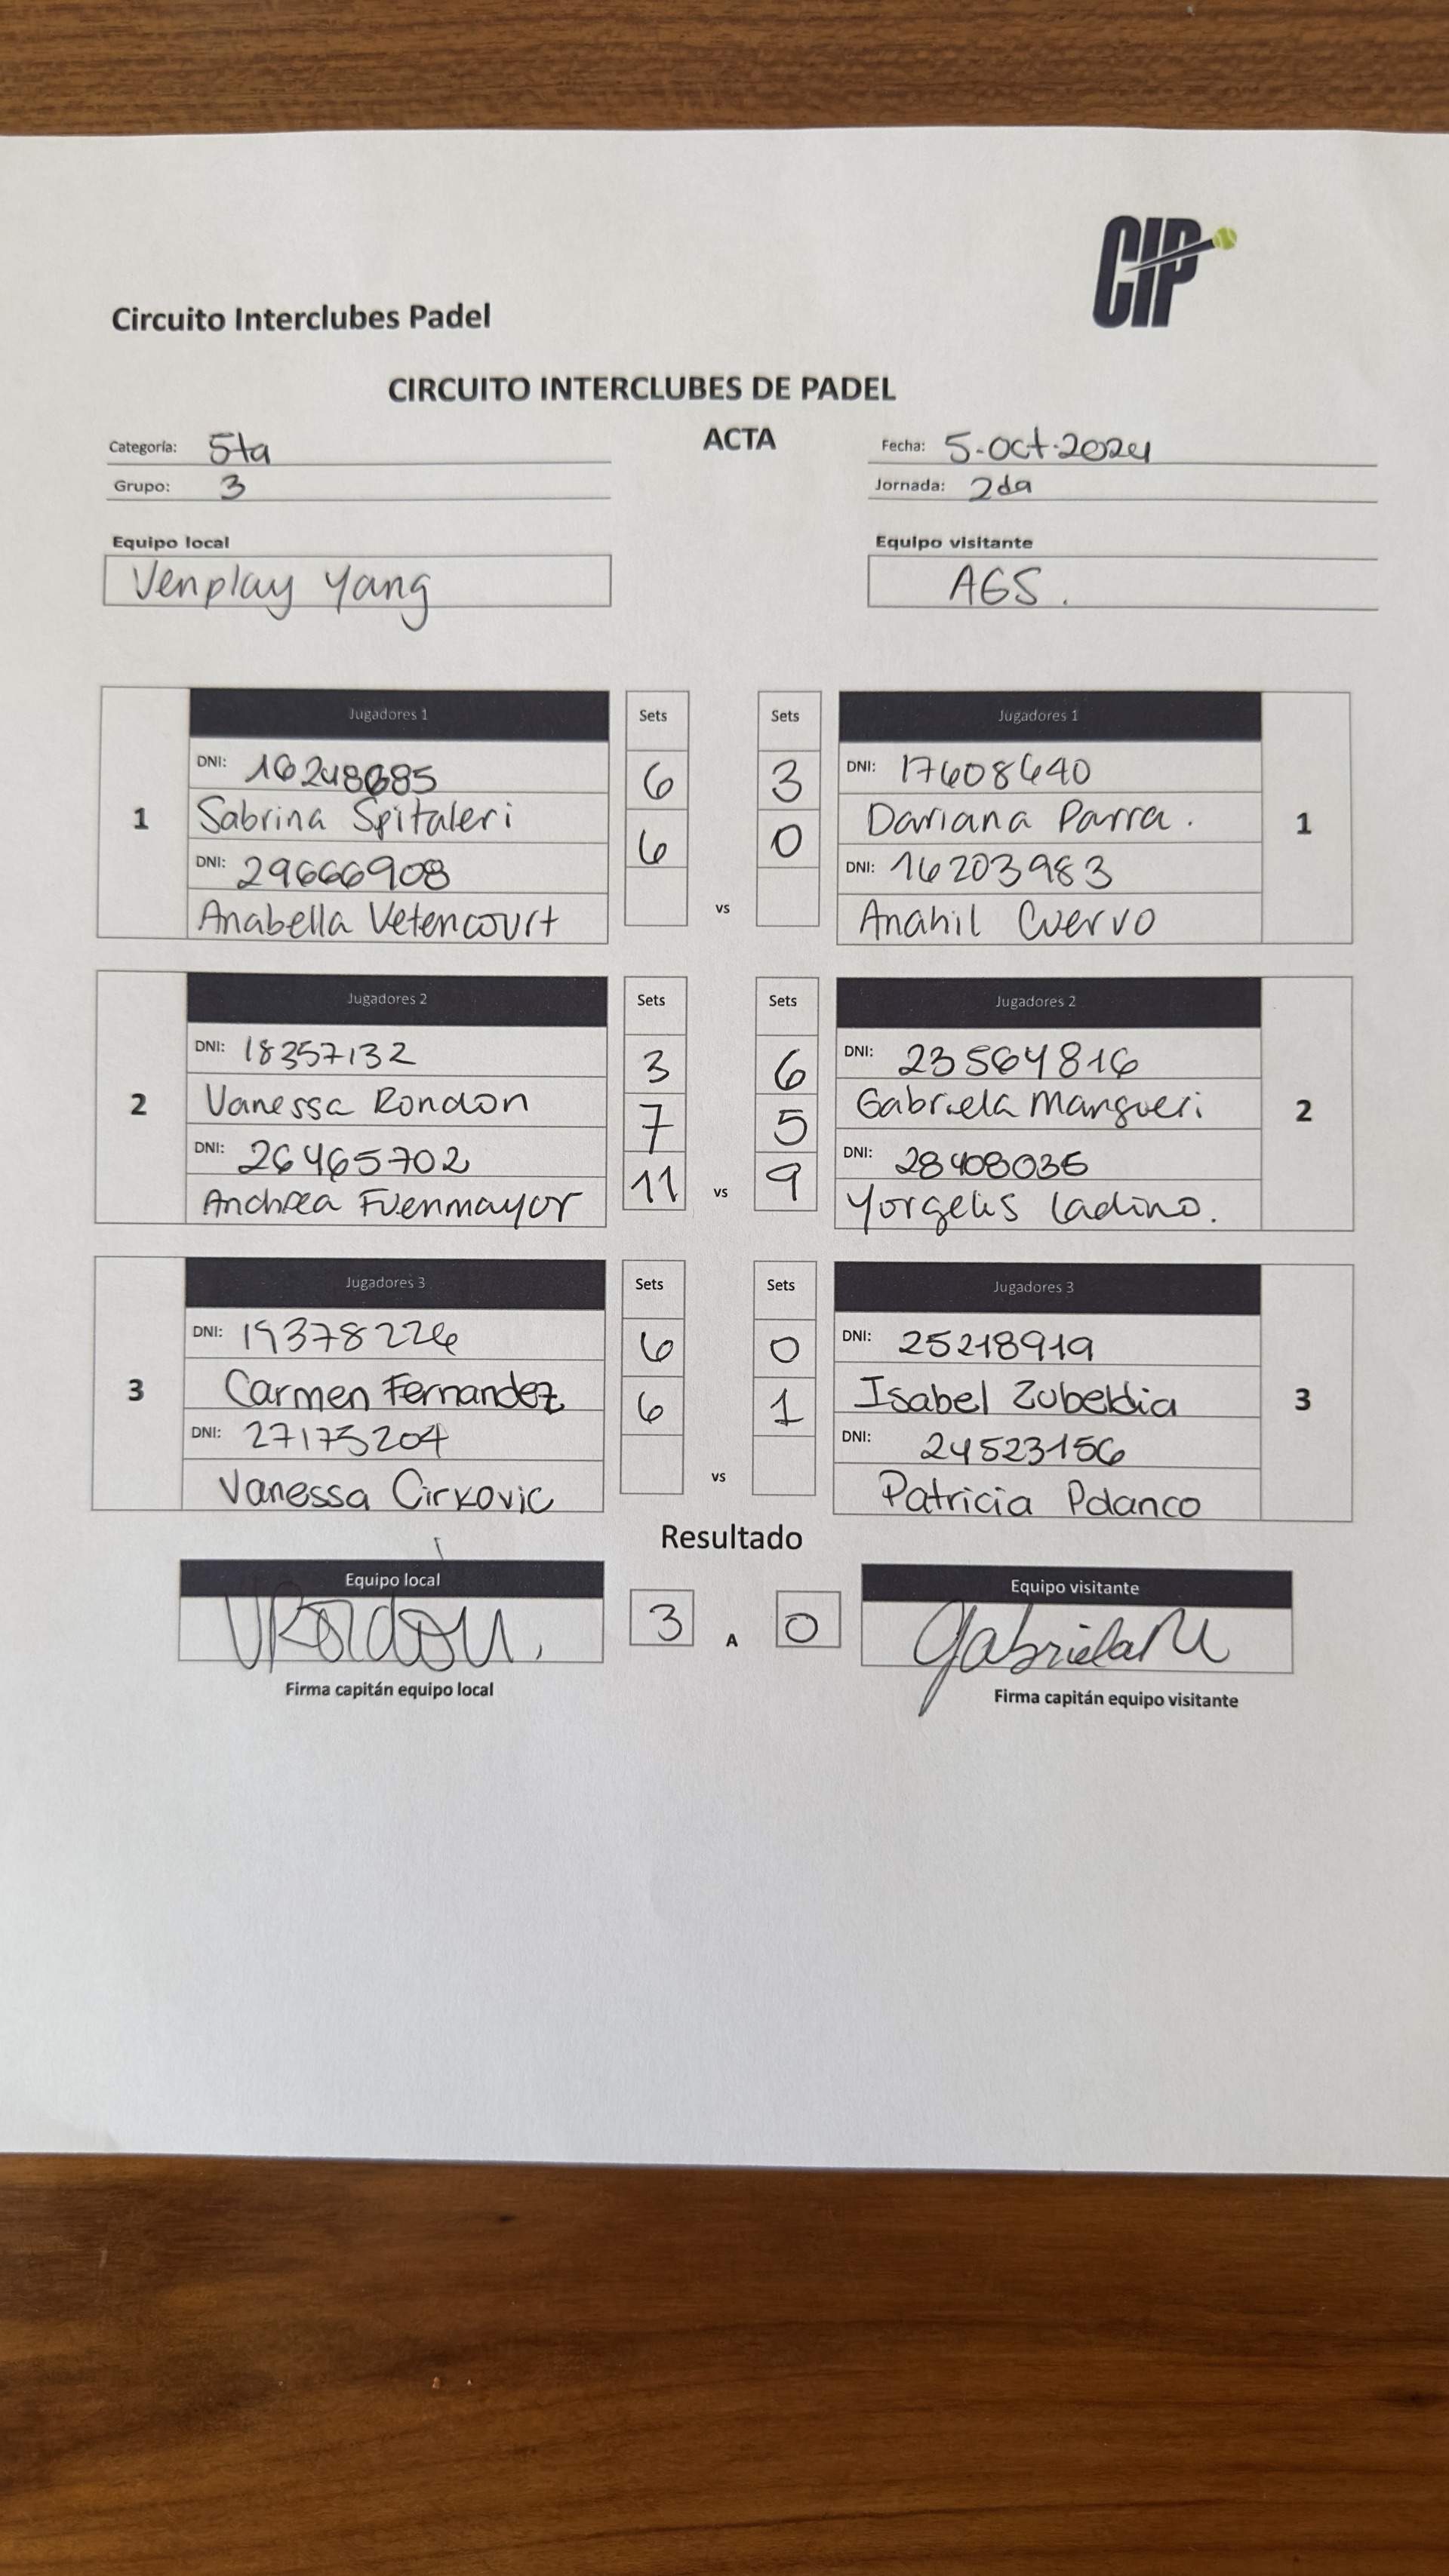 CIP
Circuito Interclubes Padel
CIRCUITO INTERCLUBES DE PADEL
ACTA
Categoría: 5ta
Fecha: 5-oct-2024
Grupo: 3
Jornada: 2da
Equipo local
Equipo visitante
Venplay Yang
AGS.
Jugadores 1 Sets Sets Jugadores 1
DNI: 6 3 DNI: 17608640
Sabrina Spitaleri Dariana Parra.
1 1
DNI: 29666908 6 0 DNI: 16203983
Anabella Vetencourt vs Anahil Cuervo
Jugadores 2 Sets Sets Jugadores 2
DNI: 18357132 3 6 DNI: 23564816
2 Vanessa Rondon 7 5 Gabriela Mangueri 2
DNI: 26465702 DNI: 28408036
Andrea Fuenmayor 11 vs 9 Yorgelis Ladino.
Jugadores 3 Sets Sets Jugadores 3
DNI: 19378226 6 0 DNI: 25218919
3 Carmen Fernandez 6 1 Isabel Zubeldia 3
DNI: 27175204 DNI: 24523156
Vanessa Cirkovic vs Patricia Polanco
Resultado
Equipo local
Equipo visitante
VRondon. 3 A 0 GabrielaM
Firma capitán equipo local
Firma capitán equipo visitante